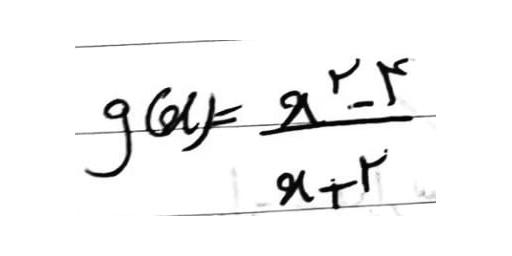 g(x) = (x^۲ - ۴) / (x + ۲)